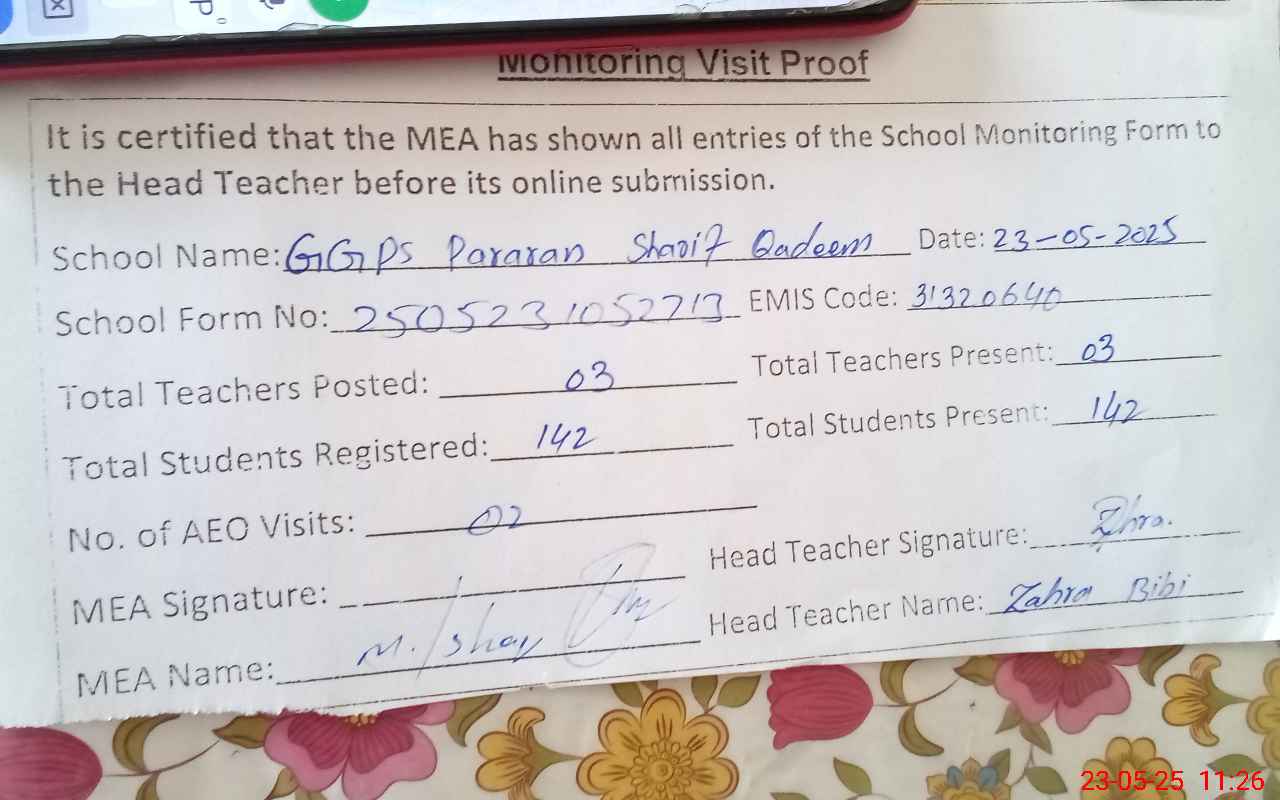 Monitoring Visit Proof
It is certified that the MEA has shown all entries of the School Monitoring Form to
the Head Teacher before its online submission.
School Name: GGPS Pararan Sharif Qadeem Date: 23-05-2025
School Form No: 2505231052713 EMIS Code: 31320640
Total Teachers Posted: 03 Total Teachers Present: 03
Total Students Registered: 142 Total Students Present: 142
No. of AEO Visits: 02
Head Teacher Signature: Zhra.
MEA Signature:
Head Teacher Name: Zahra Bibi
MEA Name: M.
23-05-25 11:26